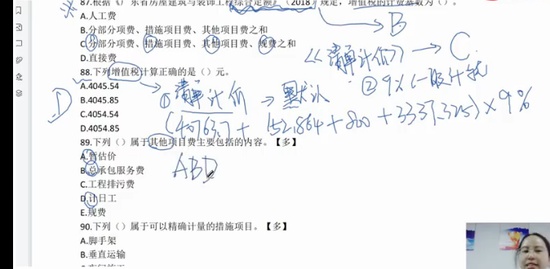 87.根据《广东省房屋建筑与装饰工程综合定额》(2018)规定，增值税的计费基数为（）。
A.人工费
B.分部分项费、措施项目费、其他项目费之和
C.分部分项费、措施项目费、其他项目费、规费之和
D.直接费
B
《清单计价》→ C.
88.下列增值税计算正确的是（）元。
A.4045.54
B.4045.85
C.4054.54
D.4054.85
D
①清单计价 → 默认 ②9%一般计税
(40763.7+152.864+800+3337.325)×9%
89.下列（）属于其他项目费主要包括的内容。【多】
A.暂估价
B.总承包服务费
C.工程排污费
D.计日工
E.规费
ABD
90.下列（）属于可以精确计量的措施项目。【多】
A.脚手架
B.垂直运输